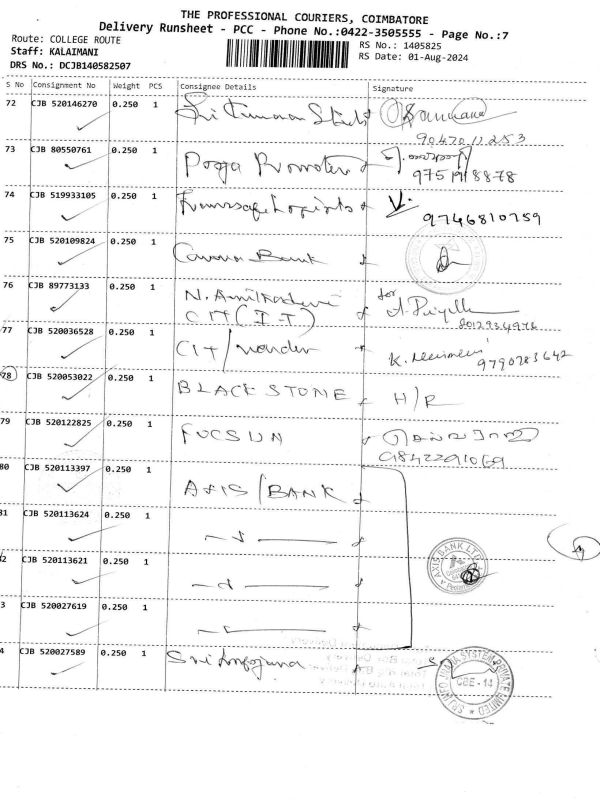 THE PROFESSIONAL COURIERS, COIMBATORE
Delivery Runsheet - PCC - Phone No.:0422-3505555 - Page No.:7
Route: COLLEGE ROUTE
RS No.: 1405825
Staff: KALAIMANI
RS Date: 01-Aug-2024
DRS No.: DCJB140582507
S No Consignment No Weight PCS Consignee Details Signature
72 CJB 520146270 0.250 1 Sri
90470 11253
73 CJB 80550761 0.250 1 Pooja Promoters
9751918878
74 CJB 519933105 0.250 1 V.
9746810759
75 CJB 520109824 0.250 1 Canara Bank
76 CJB 89773133 0.250 1 N. for
CIT (I-T)
77 CJB 520036528 0.250 1 CIT/ K.
9790783642
78 CJB 520053022 0.250 1 BLACK STONE H/R
79 CJB 520122825 0.250 1 FOCSUN
9842291069
80 CJB 520113397 0.250 1 AXIS/BANK
81 CJB 520113624 0.250 1
2 CJB 520113621 0.250 1
AXIS BANK LTD
3 CJB 520027619 0.250 1
4 CJB 520027589 0.250 1 Sri Infojana
SRI INFO JNANA SYSTEM PRIVATE LIMITED
CBE - 14